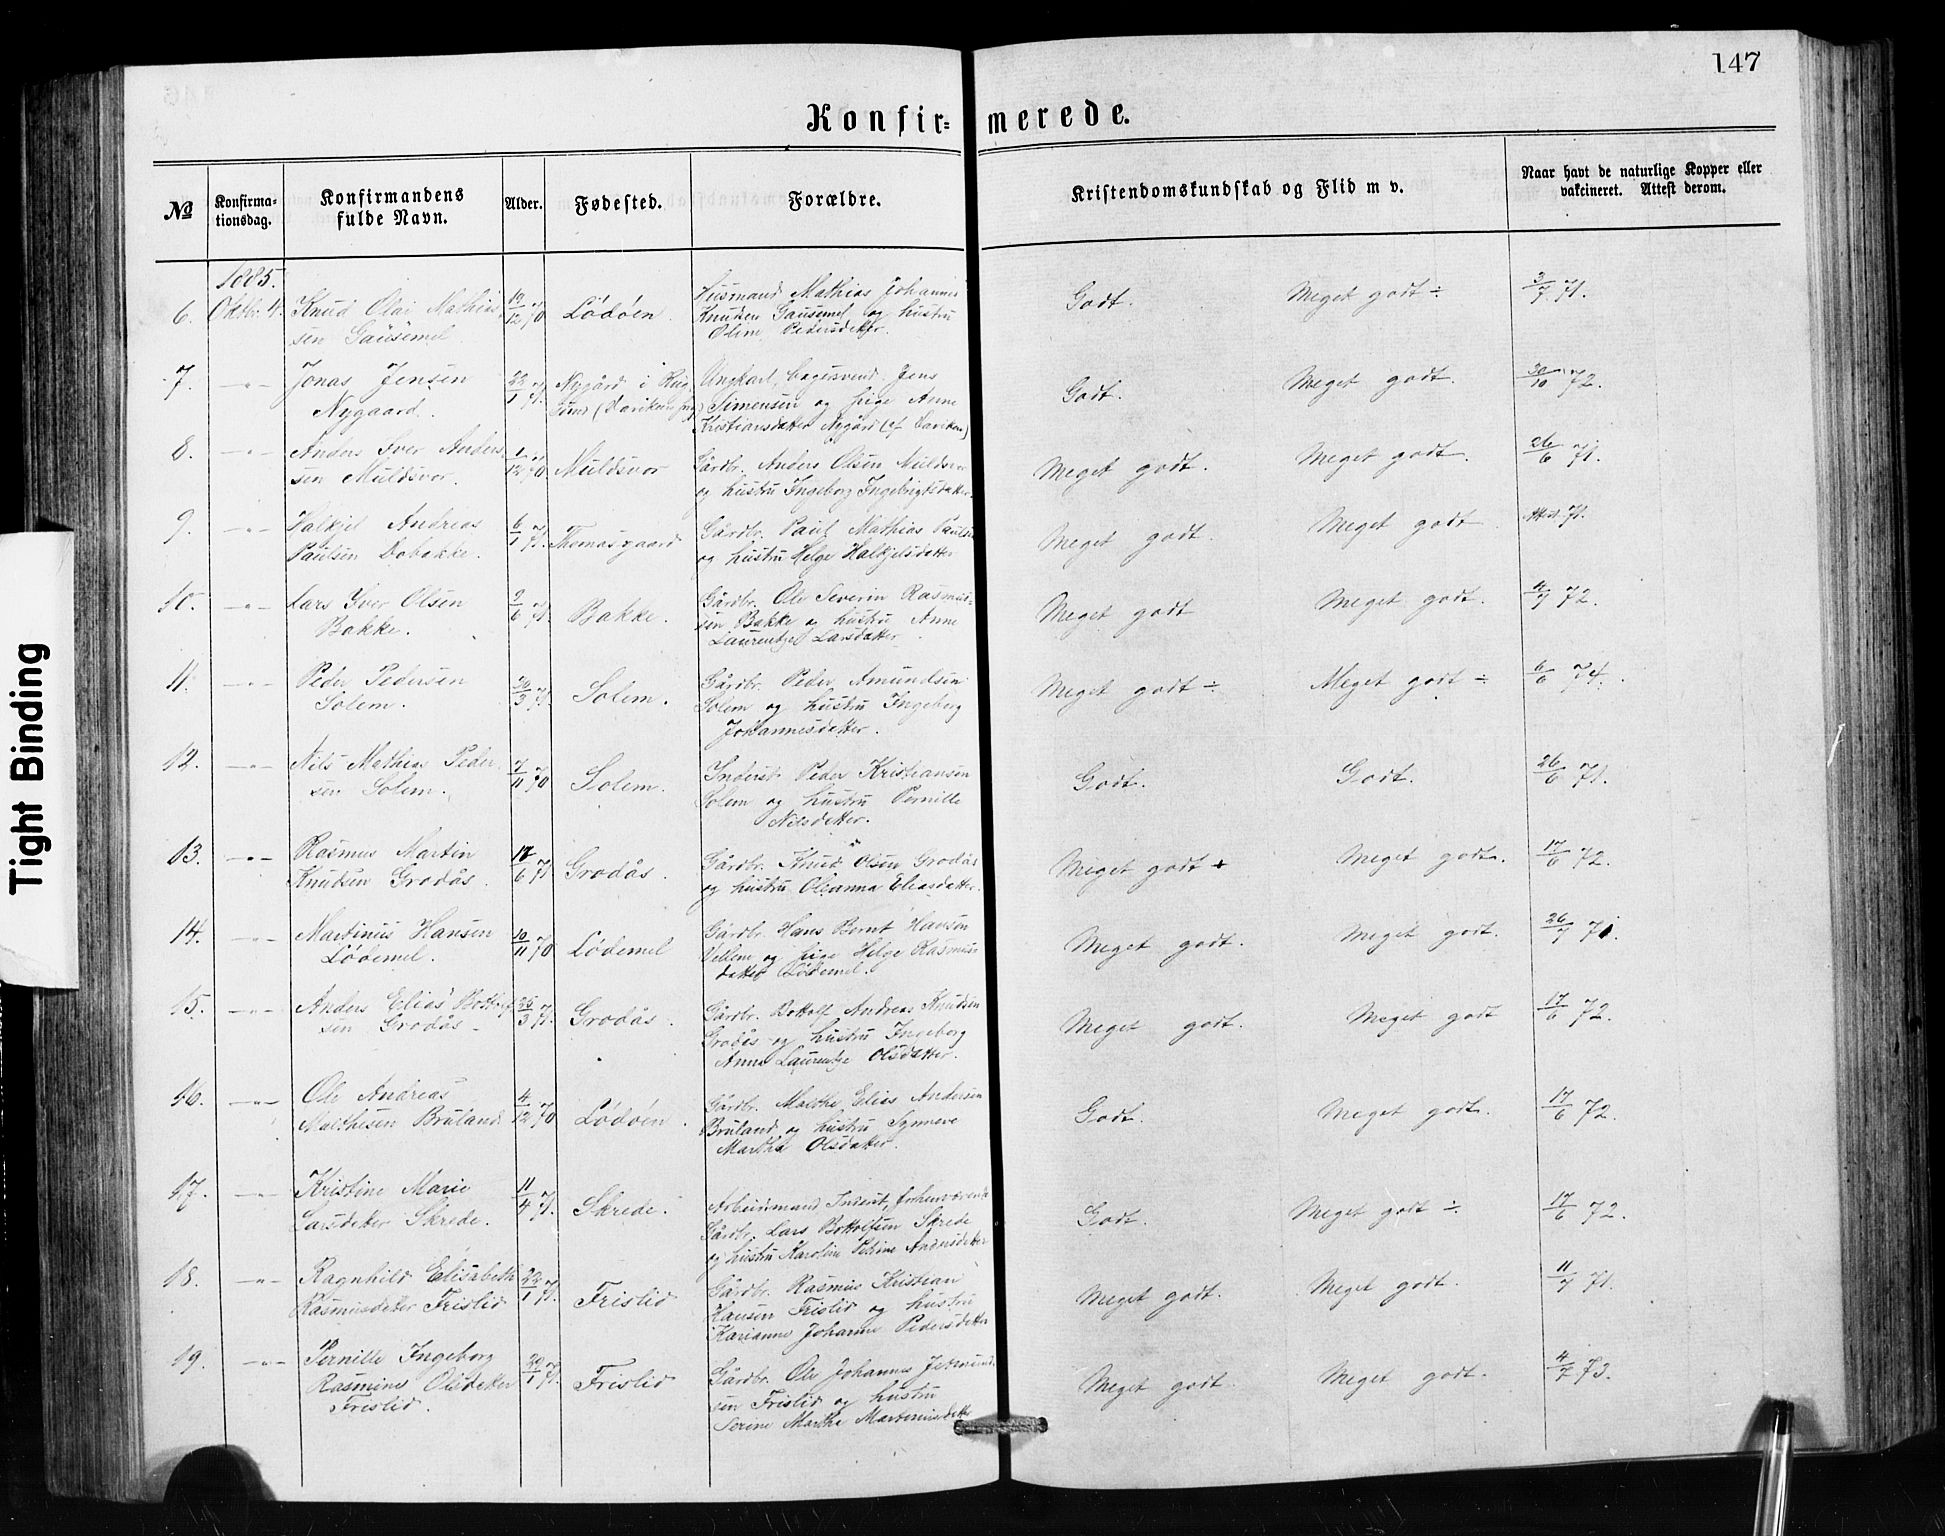 147
Konfir= merede.
№ Konfirma-tionsdag. Konfirmandens fulde Navn. Alder. Fødested. Forældre. Kristendomskundskab og Flid m v. Naar havt de naturlige Kopper eller vakcineret. Attest derom.
1885.
6. Oktbr. 4. Knud Olai Mathias 12/70 Lödöen Husmand Mathias Johannes Godt. Meget godt ÷ 3/7 71.
sen Gausemel Knudsen Gausemel og hustru
Oline Pedersdatter.
7. -"- Jonas Jensen 22/1 71. Nygård i Ungkarl, Jens Godt. Meget godt. 30/10 72.
Nygaard. Simensen og pige Anne
Kristiansdatter Nygård
8. -"- Anders Iver Anders 1/12 70 Muldsvor Gårdbr. Anders Olsen Muldsvor Meget godt. Meget godt. 26/6 71.
sen Muldsvor. og hustru Ingeborg Ingebrigtsdatter.
9. -"- Halkjel Andreas 6/1 71. Thomasgaard Gårdbr. Paul Mathias Paulsen Meget godt. Meget godt 71.
Paulsen og hustru Helge Halkjelsdatter
10. -"- Lars Iver Olsen 2/6 71. Bakke. Gårdbr. Ole Severin Rasmus= Meget godt Meget godt. 4/7 72.
Bakke. sen Bakke og hustru Anne
Laurentze Larsdatter
11. -"- Peder Pedersen 30/3 71. Solem. Gårdbr. Peder Amundsen Meget godt ÷ Meget godt ÷ 6/6 74.
Solem. Solem og hustru Ingeborg
Johannesdatter.
12. -"- Nils Mathias Peder 7/11 70 Solem. Inderst Peder Kristiansen Godt. Godt. 26/6 71.
sen Solem. Solem og hustru Pernille
Nilsdatter.
13. -"- Rasmus Martin /6 71 Grodås. Gårdbr. Knud Olsen Grodås Meget godt + Meget godt. 17/6 72.
Knudsen Grodås. og hustru Oleanna Eliasdatter.
14. -"- Martinus Hansen 10/11 70 Lödemel Gårdbr. Hans Bernt Hansen Meget godt. Meget godt. 26/7 71.
Lödemel. og pige Helge Rasmus
datter Lödemel.
15. -"- Anders Elias Bottolf 25/3 71. Grodås. Gårdbr. Bottolf Andreas Knudsen Meget godt. Meget godt 17/6 72.
sen Grodås - Grodås og hustru Ingeborg
Anna Laurentze Olsdatter.
16. -"- Ole Andreas 4/12 70 Lödöen. Gårdbr. Malthe Elias Andersen Godt. Meget godt. 17/6 72.
Malthesen Bruland Bruland og hustru Synneve
Martha Olsdatter.
17. -"- Kristine Marie 11/4 71. Skrede. Arbeidsmand, Inderst, forhenværende Godt. Meget godt ÷. 17/6 72.
Larsdatter Skrede. Gårdbr. Lars Bottolfsen Skrede
og hustru Karoline Petrine Andersdatter
18. -"- Ragnhild Elisabeth 22/1 71. Frislid Gårdbr. Rasmus Kristian Meget godt. Meget godt. 11/7 71.
Rasmusdatter Frislid Hansen Frislid og hustru
Karianne Johanne Pedersdatter
19. -"- Pernille Ingeborg 29/1 71. Frislid Gårdbr. Ole Johannes Jetmund Meget godt Meget godt. 4/7 73.
Rasmine Olsdatter sen Frislid og hustru
Frislid. Serine Marthe Martinusdatter
Tight Binding